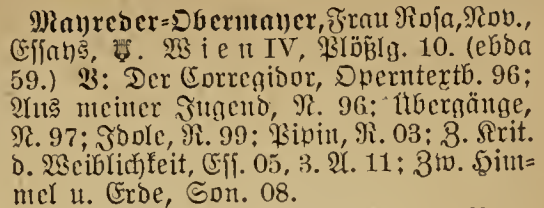 Mayreder-Obermayer, Frau Rosa, Nov.,
Essays, W i e n IV, Plößlg. 10. (ebda
59.) V: Der Corregidor, Operntextb. 96;
Aus meiner Jugend, N. 96; Übergänge,
N. 97; Idole, N. 99; Pipin, N. 03; Z. Krit.
d. Weiblichkeit, Ess. 05, 3. A. 11; Zw. Him-
mel u. Erde, Son. 08.